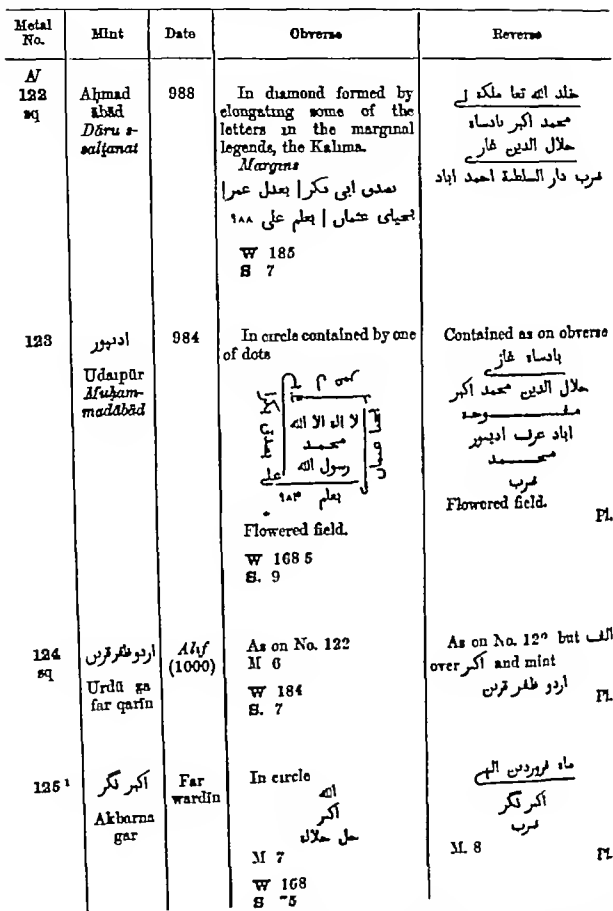 Metal No.
Mint
Date
Obverse
Reverse
N
122
sq
Aḥmad
ābād
Dāru s-
salṭanat
988
In diamond formed by
elongating some of the
letters in the marginal
legends, the Kalima.
Margins
بصدق ابی بکر | بعدل عمر |
بحیای عثمان | بعلم علی ۹۸۸
W 185
S 7
خلد الله تعا ملکه
محمد اکبر بادساه
حلال الدین غازی
ضرب دار السلطنة احمد اباد
123
ادیپور
Udaipūr
Muḥam-
madābād
984
In circle contained by one
of dots
لا اله الا الله
محمد
رسول الله
بعلم ۹۸۴
Flowered field.
W 168 5
S. 9
Contained as on obverse
بادساه غازی
حلال الدین محمد اکبر
اباد عرف ادیپور
محمد
ضرب
Flowered field.
Pl.
124
sq
اردو ظفر قرین
Urdū ẓa
far qarīn
Alif
(1000)
As on No. 122
M 6
W 184
S. 7
As on No. 122 but الف
over اکبر and mint
اردو ظفر قرین
Pl.
125 ¹
اکبر نگر
Akbarna
gar
Far
wardīn
In circle
الله
اکبر
جل جلاله
M 7
W 168
S 75
ماه فروردین الهی
اکبر نگر
ضرب
M. 8
Pl.